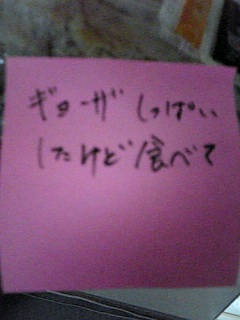 ギョーザ しっぱい
したけど食べて